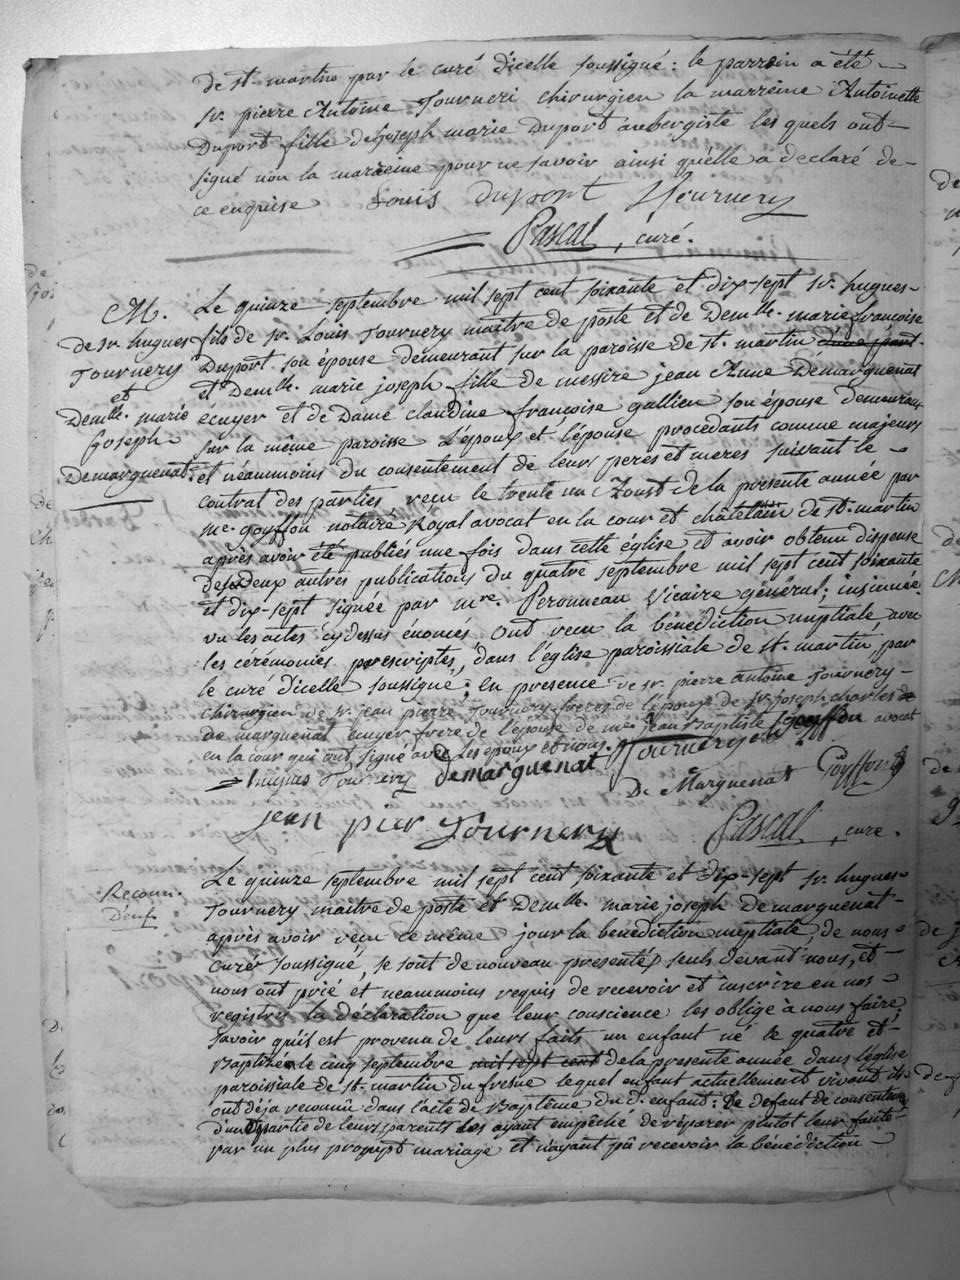 de st. martin par le curé d'icelle soussigné : le parrein a été
sr. pierre Antoine Tourneri chirurgien la marreine Antoinette
Duport fille de joseph marie Duport aubergiste les quels ont
signé non la marreine pour ne savoir ainsi qu'elle a declaré de
ce enquise Louis duport Tournery
Pascal, curé.
M.
de sr. hugues
Tournery
et
Demlle. marie
joseph
Demarquenat.
Le quinze septembre mil sept cent soixante et dix-sept sr. hugues
fils de sr. Louis Tournery maitre de poste et de Demlle. marie françoise
Duport son épouse demeurant sur la paroisse de st. martin
et Demlle. marie joseph fille de messire jean Anne Demarquenat
ecuyer et de Dame claudine françoise gallien son épouse demeurant
sur la même paroisse L'époux et l'épouse procédants comme majeurs
et néammoins du consentement de leurs peres et meres suivant le
contrat des parties recu le trente un Aoust de la presente année par
me. goyffon notaire Royal avocat en la cour et châtelain de st. martin
après avoir été publiés une fois dans cette église et avoir obtenu dispense
des deux autres publications du quatre septembre mil sept cent soixante
et dix-sept signée par mre. Peronneau Vicaire général ; insinuée.
vu les actes cy dessus énoncés ont recu la bénédiction nuptiale, avec
les cérémonies prescriptes, dans l'église paroissiale de st. martin par
le curé d'icelle soussigné ; en presence de sr. pierre Antoine Tournery
chirurgien de sr. jean pierre Tournery freres de l'époux de sr. joseph charles de
de marquenat ecuyer frere de l'épouse de me. jean Baptiste goyffon avocat
en la cour qui ont signé avec les époux et nous. Tournery
hugues Tournery demarquenat De Marquenat Goyffon
jean pier Tournery Pascal, curé.
Reconn.
d'enf.
Le quinze septembre mil sept cent soixante et dix-sept sr. hugues
Tournery maitre de poste et Demlle. marie joseph demarquenat
après avoir recu ce même jour la bénédiction nuptiale de nous
curé soussigné, se sont de nouveau presentés seuls devant nous, et
nous ont prié et neammoins requis de recevoir et inscrire en nos
registres la déclaration que leur conscience les oblige à nous faire;
savoir qu'il est provenu de leurs faits un enfant né le quatre et
Baptisé le cinq septembre mil sept cent de la presente année dans l'église
paroissiale de st. martin du fresne lequel enfant actuellement vivant ils
ont déja reconnû dans l'acte de Baptême du d. enfant : le defaut de consentement
d'une partie de leurs parents les ayant empêché de réparer plutot leur faute
par un plus prompt mariage et n'ayant pû recevoir la bénédiction